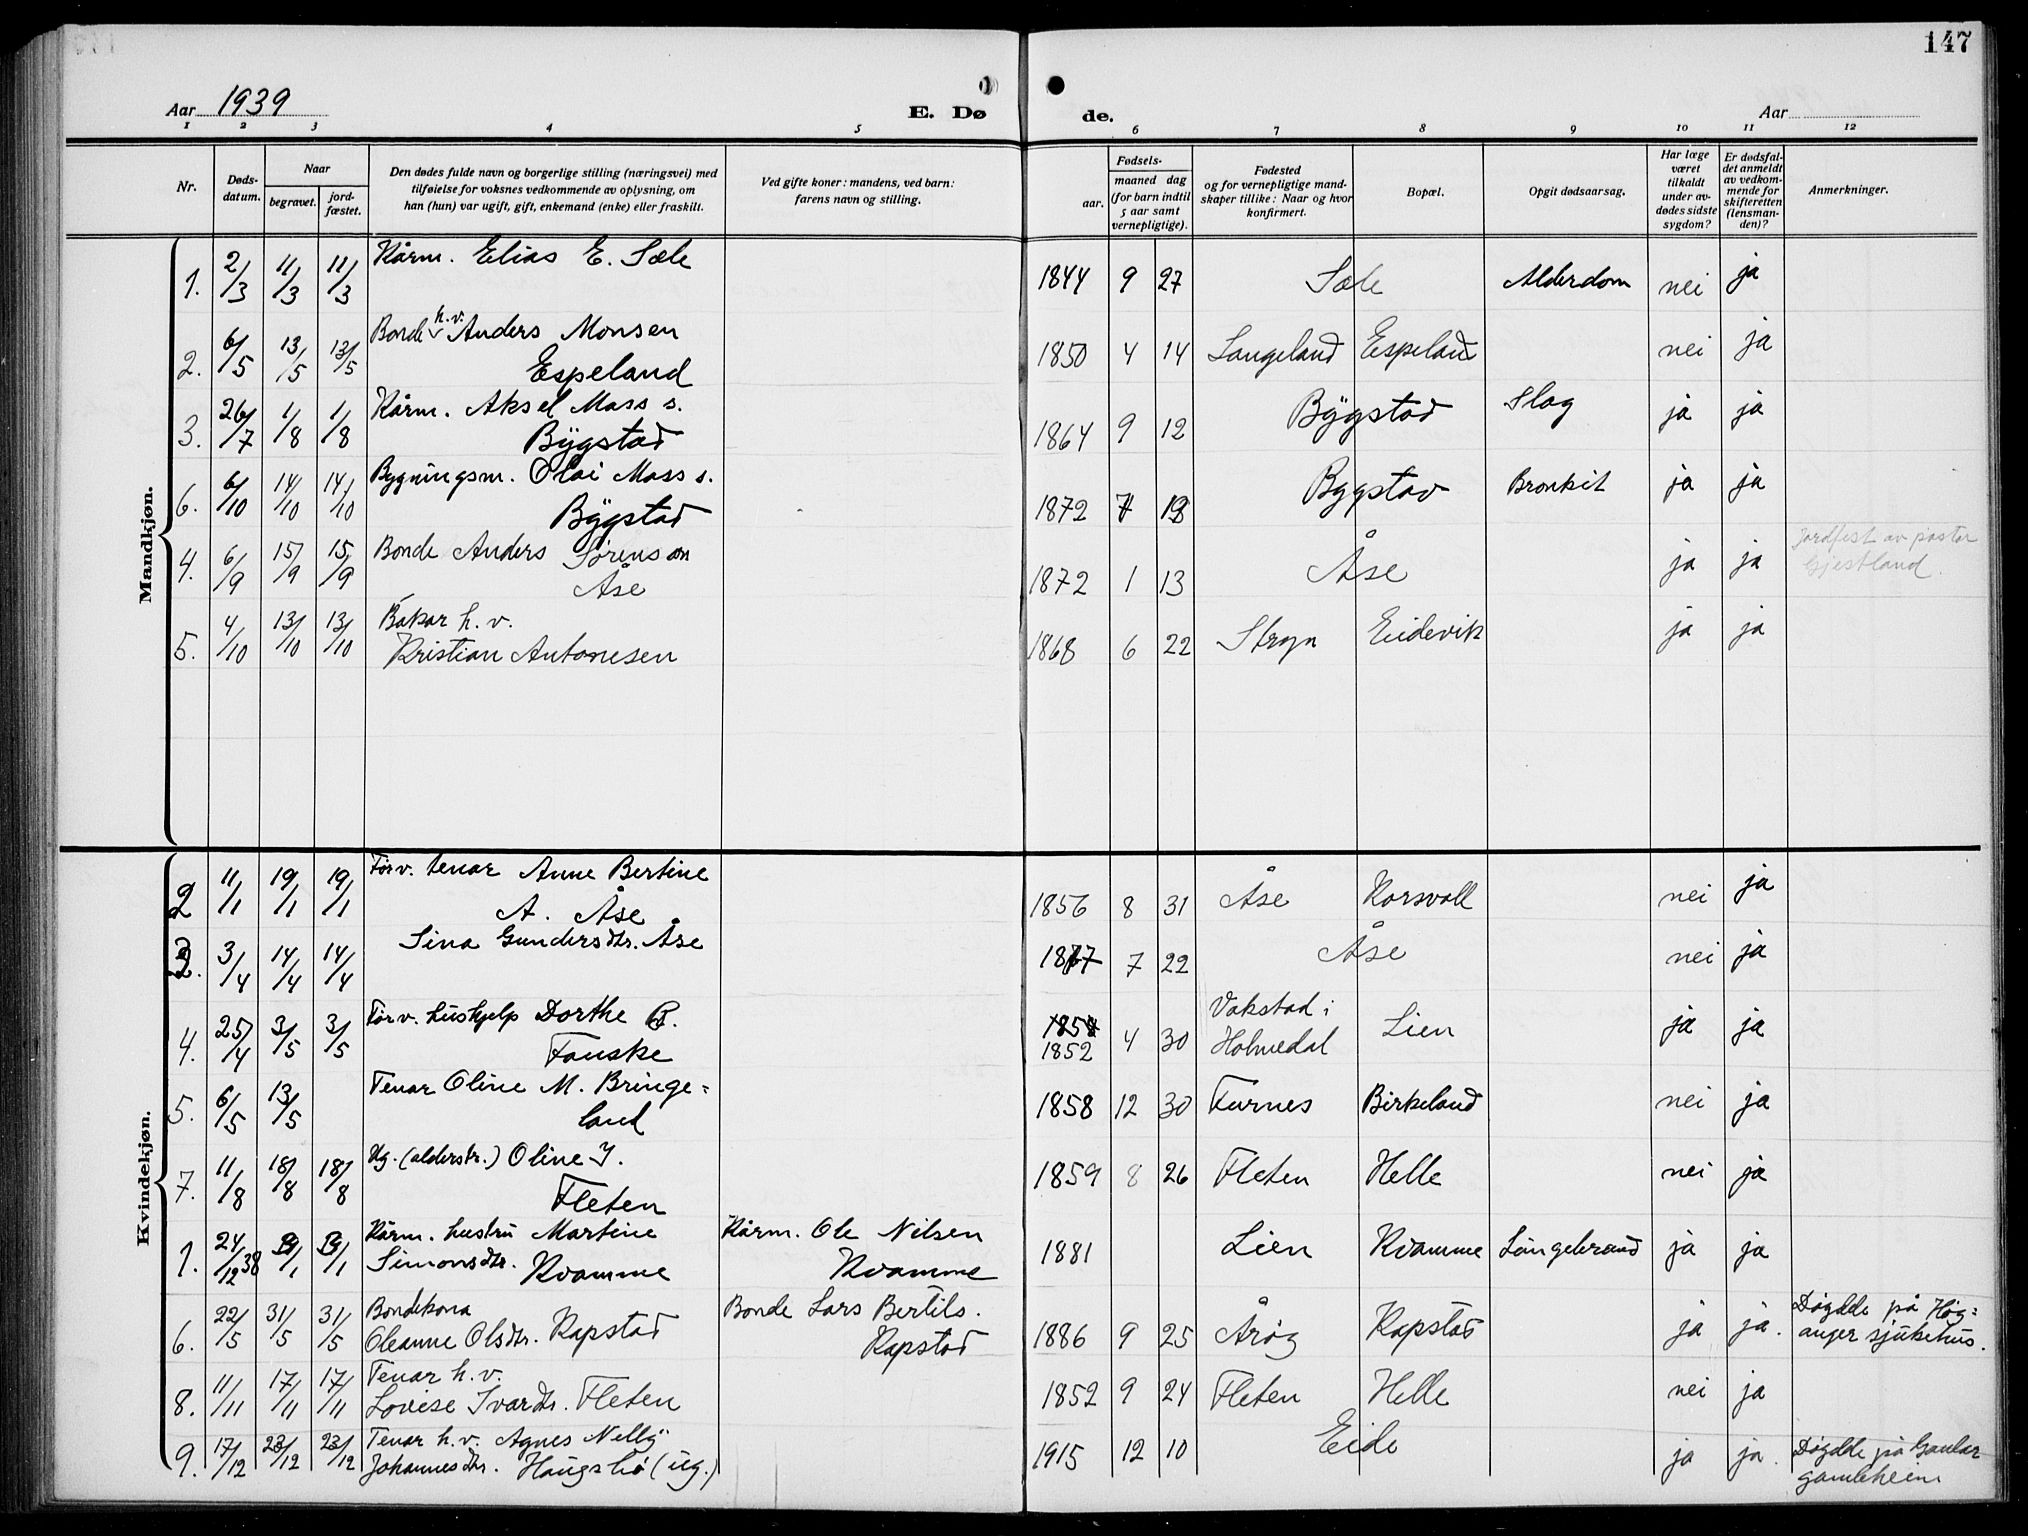 147
Aar 1939
E. Dø
de.
Aar
1 2 3 4 5 6 7 8 9 10 11 12
Nr.
Døds-
datum.
Naar
begravet.
jord-
fæstet.
Den dødes fulde navn og borgerlige stilling (næringsvei) med
tilføielse for voksnes vedkommende av oplysning, om
han (hun) var ugift, gift, enkemand (enke) eller fraskilt.
Ved gifte koner: mandens, ved barn:
farens navn og stilling.
Fødsels-
aar.
maaned dag
(for barn indtil
5 aar samt
vernepligtige).
Fødested
og for vernepligtige mand-
skaper tillike: Naar og hvor
konfirmert.
Bopæl.
Opgit dødsaarsag.
Har læge
været
tilkaldt
under av-
dødes sidste
sygdom?
Er dødsfal-
det anmeldt
av vedkom-
mende for
skifteretten
(lensman-
den)?
Anmerkninger.
Mandkjøn.
1. 2/3 11/3 11/3 Kårm. Elias E. Sæle 1844 9 27 Sæle Alderdom nei ja
2. 6/5 13/5 13/5 Bonde h.v. Anders Monsen
Espeland 1850 4 14 Langeland Espeland nei ja
3. 26/7 1/8 1/8 Kårm. Aksel Mass s.
Bygstad 1864 9 12 Bygstad Slag ja ja
6. 6/10 14/10 14/10 Bygningsm. Olai Mass s.
Bygstad 1872 7 18 Bygstad Bronkit ja ja
4. 6/9 15/9 15/9 Bonde Anders Sørenson
Åse 1872 1 13 Åse ja ja Jordfest av pastor
Gjestland.
5. 4/10 13/10 13/10 Bakar h.v.
Kristian Antonesen 1868 6 22 Stryn Eidevik ja ja
Kvindekjøn.
2 11/1 19/1 19/1 Førv. tenar Anne Bertine
A. Åse 1856 8 31 Åse Korsvoll nei ja
3. 3/4 14/4 14/4 Sina Gundersdtr. Åse 1877 7 22 Åse nei ja
4. 25/4 3/5 3/5 Førv. hushjelp Dorthe
Fauske 1852 4 30 Vakstad i
Holmedal Lien ja ja
5. 6/5 13/5 Tenar Oline M. Bringe=
land 1858 12 30 Furnes Birkeland nei ja
7. 11/8 18/8 18/8 Ug. (alderstr.) Oline I.
Fleten 1859 8 26 Fleten Helle nei ja
1. 24/12 38 Kårm. hustru Martine
Simonsdtr. Kvamme Kårm. Ole Nilsen
Kvamme 1881 Lien Kvamme Lungebrand ja ja
6. 22/5 31/5 31/5 Bondekona
Oleanne Olsdtr. Rapstad Bonde Lars Bertils.
Rapstad 1886 9 25 Årøy Rapstad ja ja. Døydde på Høy=
anger sjukehus.
8. 11/11 17/11 17/11 Tenar h.v.
Lovise Ivardtr. Fleten 1852 9 24 Fleten Helle nei ja
9. 17/12 23/12 23/12 Tenar h.v. Agnes Nelly
Johannesdtr. Haugsbø (ug.) 1915 12 10 Eide ja ja. Døydde på Gaular
gamleheim